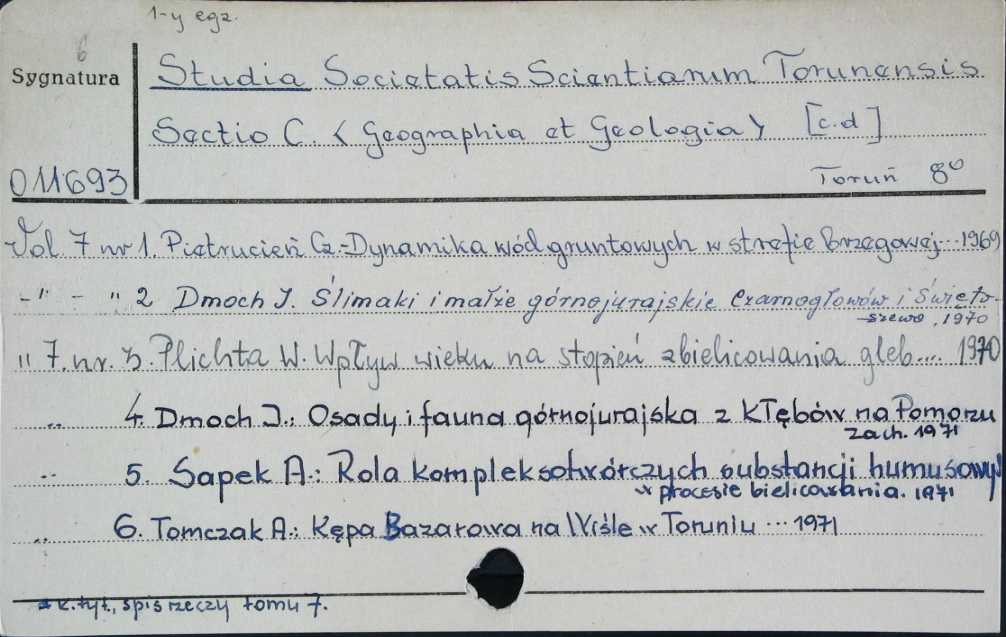 1-y egz.
6
Sygnatura
Studia Societatis Scientiarum Torunensis
Sectio C. < Geographia et Geologia > [c.d]
011693
Toruń 8º
Vol. 7 nr 1. Pietrucień Cz.-Dynamika wód gruntowych w strefie brzegowej...1969
-"- " 2 Dmoch I. Ślimaki i małże górnojurajskie Czarnogłowów i Święto-
szewo, 1970
" 7. nr. 3. Plichta W. Wpływ wieku na stopień zbielicowania gleb.... 1970
" 4. Dmoch I.: Osady i fauna górnojurajska z Kłębów na Pomorzu
zach. 1971
" 5. Sapek A.: Rola kompleksotwórczych substancji humusowych
w procesie bielicowania. 1971
" 6. Tomczak A.: Kępa Bazarowa na Wiśle w Toruniu ... 1971
k. tyt., spis rzeczy tomu 7.